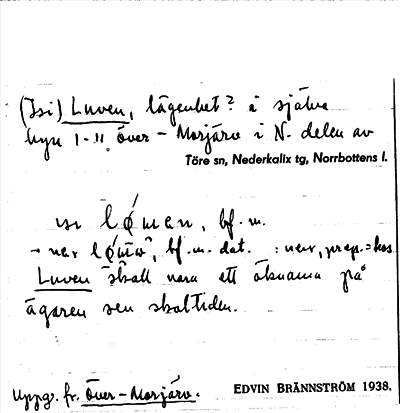 (Isi) Luven, lägenhet? i själva
byn 1-11 Över-Morjärv i N. delen av
Töre sn, Nederkalix tg, Norrbottens l.
lǿwen, bf. m.
bf. m. dat. : nev, prep. = hos
Luven skall vara ett öknamn på
ägaren sen skoltiden.
Uppg. fr. Över-Morjärv.
EDVIN BRÄNNSTRÖM 1938.